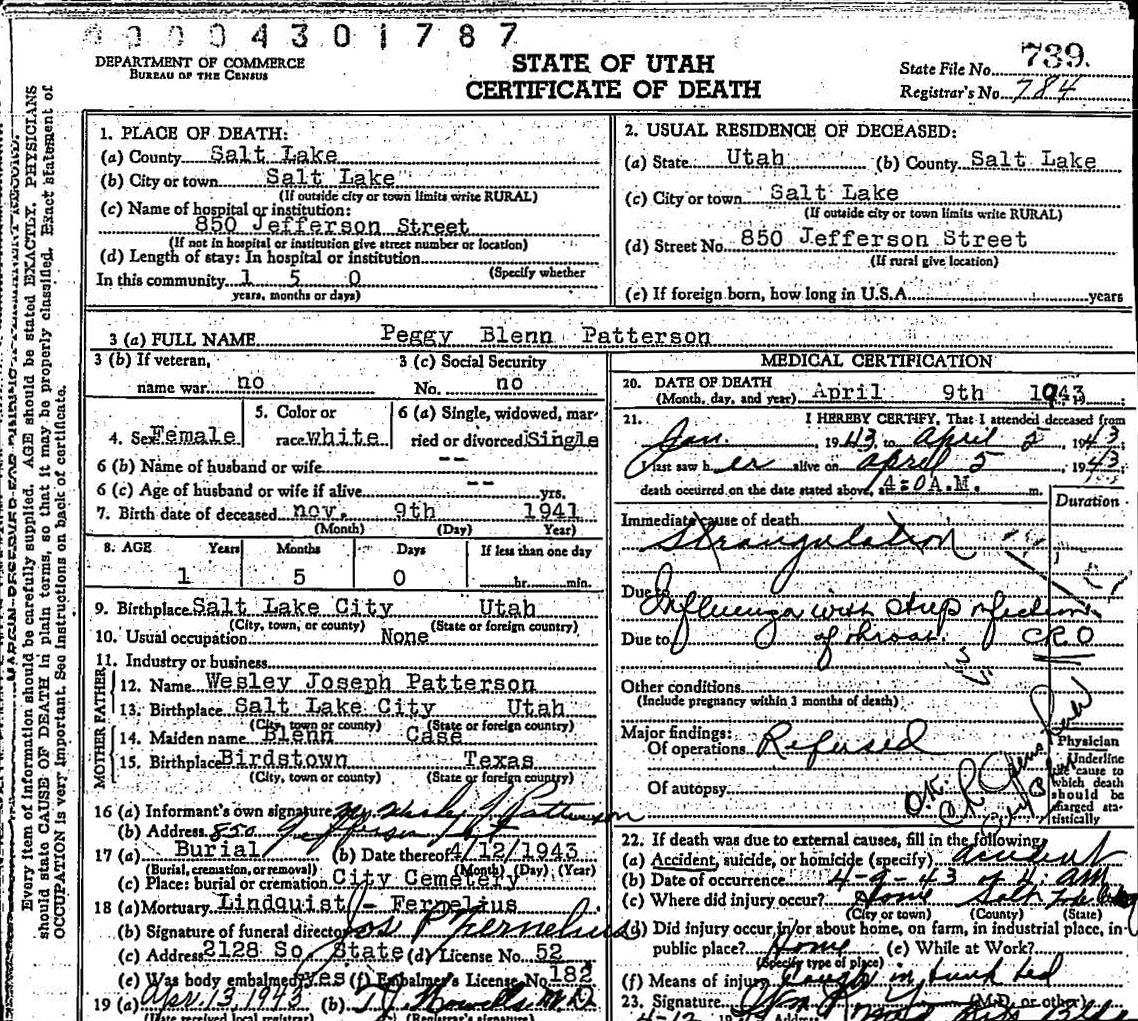 0 0 0 0 4 3 0 1 7 8 7
DEPARTMENT OF COMMERCE
BUREAU OF THE CENSUS
STATE OF UTAH
CERTIFICATE OF DEATH
State File No. 739.
Registrar's No. 784
Every item of information should be carefully supplied. AGE should be stated EXACTLY. PHYSICIANS
should state CAUSE OF DEATH in plain terms, so that it may be properly classified. Exact statement of
OCCUPATION is very important. See instructions on back of certificate.
1. PLACE OF DEATH:
(a) County Salt Lake
(b) City or town Salt Lake
(If outside city or town limits write RURAL)
(c) Name of hospital or institution:
850 Jefferson Street
(If not in hospital or institution give street number or location)
(d) Length of stay: In hospital or institution
(Specify whether
In this community 1 5 0
years, months or days)
2. USUAL RESIDENCE OF DECEASED:
(a) State Utah (b) County Salt Lake
(c) City or town Salt Lake
(If outside city or town limits write RURAL)
(d) Street No. 850 Jefferson Street
(If rural give location)
(e) If foreign born, how long in U.S.A. years
3 (a) FULL NAME Peggy Blenn Patterson
3 (b) If veteran, 3 (c) Social Security
name war no No. no
4. Sex Female
5. Color or
race white
6 (a) Single, widowed, mar-
ried or divorced Single
6 (b) Name of husband or wife --
6 (c) Age of husband or wife if alive -- yrs.
7. Birth date of deceased nov. 9th 1941
(Month) (Day) Year)
8. AGE Years Months Days If less than one day
1 5 0 hr. min.
9. Birthplace Salt Lake City Utah
(City, town, or county) (State or foreign country)
10. Usual occupation None
11. Industry or business
MOTHER FATHER
12. Name Wesley Joseph Patterson
13. Birthplace Salt Lake City Utah
(City, town or county) (State or foreign country)
14. Maiden name Blenn Case
15. Birthplace Birdstown Texas
(City, town or county) (State or foreign country)
16 (a) Informant's own signature Wesley J. Patterson
(b) Address 850 Jefferson St
17 (a) Burial (b) Date thereof 4/12/1943
(Burial, cremation, or removal) (Month) (Day) (Year)
(c) Place: burial or cremation City Cemetery
18 (a) Mortuary Lindquist - Fernelius
(b) Signature of funeral director Jos P Fernelius
(c) Address 2128 So. State (d) License No. 52
(e) Was body embalmed yes (f) Embalmer's License No. 182
19 (a) Apr. 13, 1943 (b) M.D.
(Date received local registrar) (Registrar's signature)
MEDICAL CERTIFICATION
20. DATE OF DEATH
(Month, day, and year) April 9th 1943
21. I HEREBY CERTIFY, That I attended deceased from
Jan. 1943 to April 5, 1943
I last saw her alive on April 5, 1943
death occurred on the date stated above, at 4:0 A.M. m.
Duration
Immediate cause of death
Strangulation
Due to Influenza with strep infection
Due to of throat. C.R.O
Other conditions
(Include pregnancy within 3 months of death)
Major findings:
Of operations Refused
Of autopsy
O.K.
Physician
Underline
the cause to
which death
should be
charged sta-
tistically
22. If death was due to external causes, fill in the following:
(a) Accident, suicide, or homicide (specify) accident
(b) Date of occurrence 4-9-43 at 4: am
(c) Where did injury occur? Home Salt Lake
(City or town) (County) (State)
(d) Did injury occur in or about home, on farm, in industrial place, in
public place? Home (e) While at Work?
(Specify type of place)
(f) Means of injury Caught in bunk bed
23. Signature (M.D. or other)
4-12 1943 Address Bldg